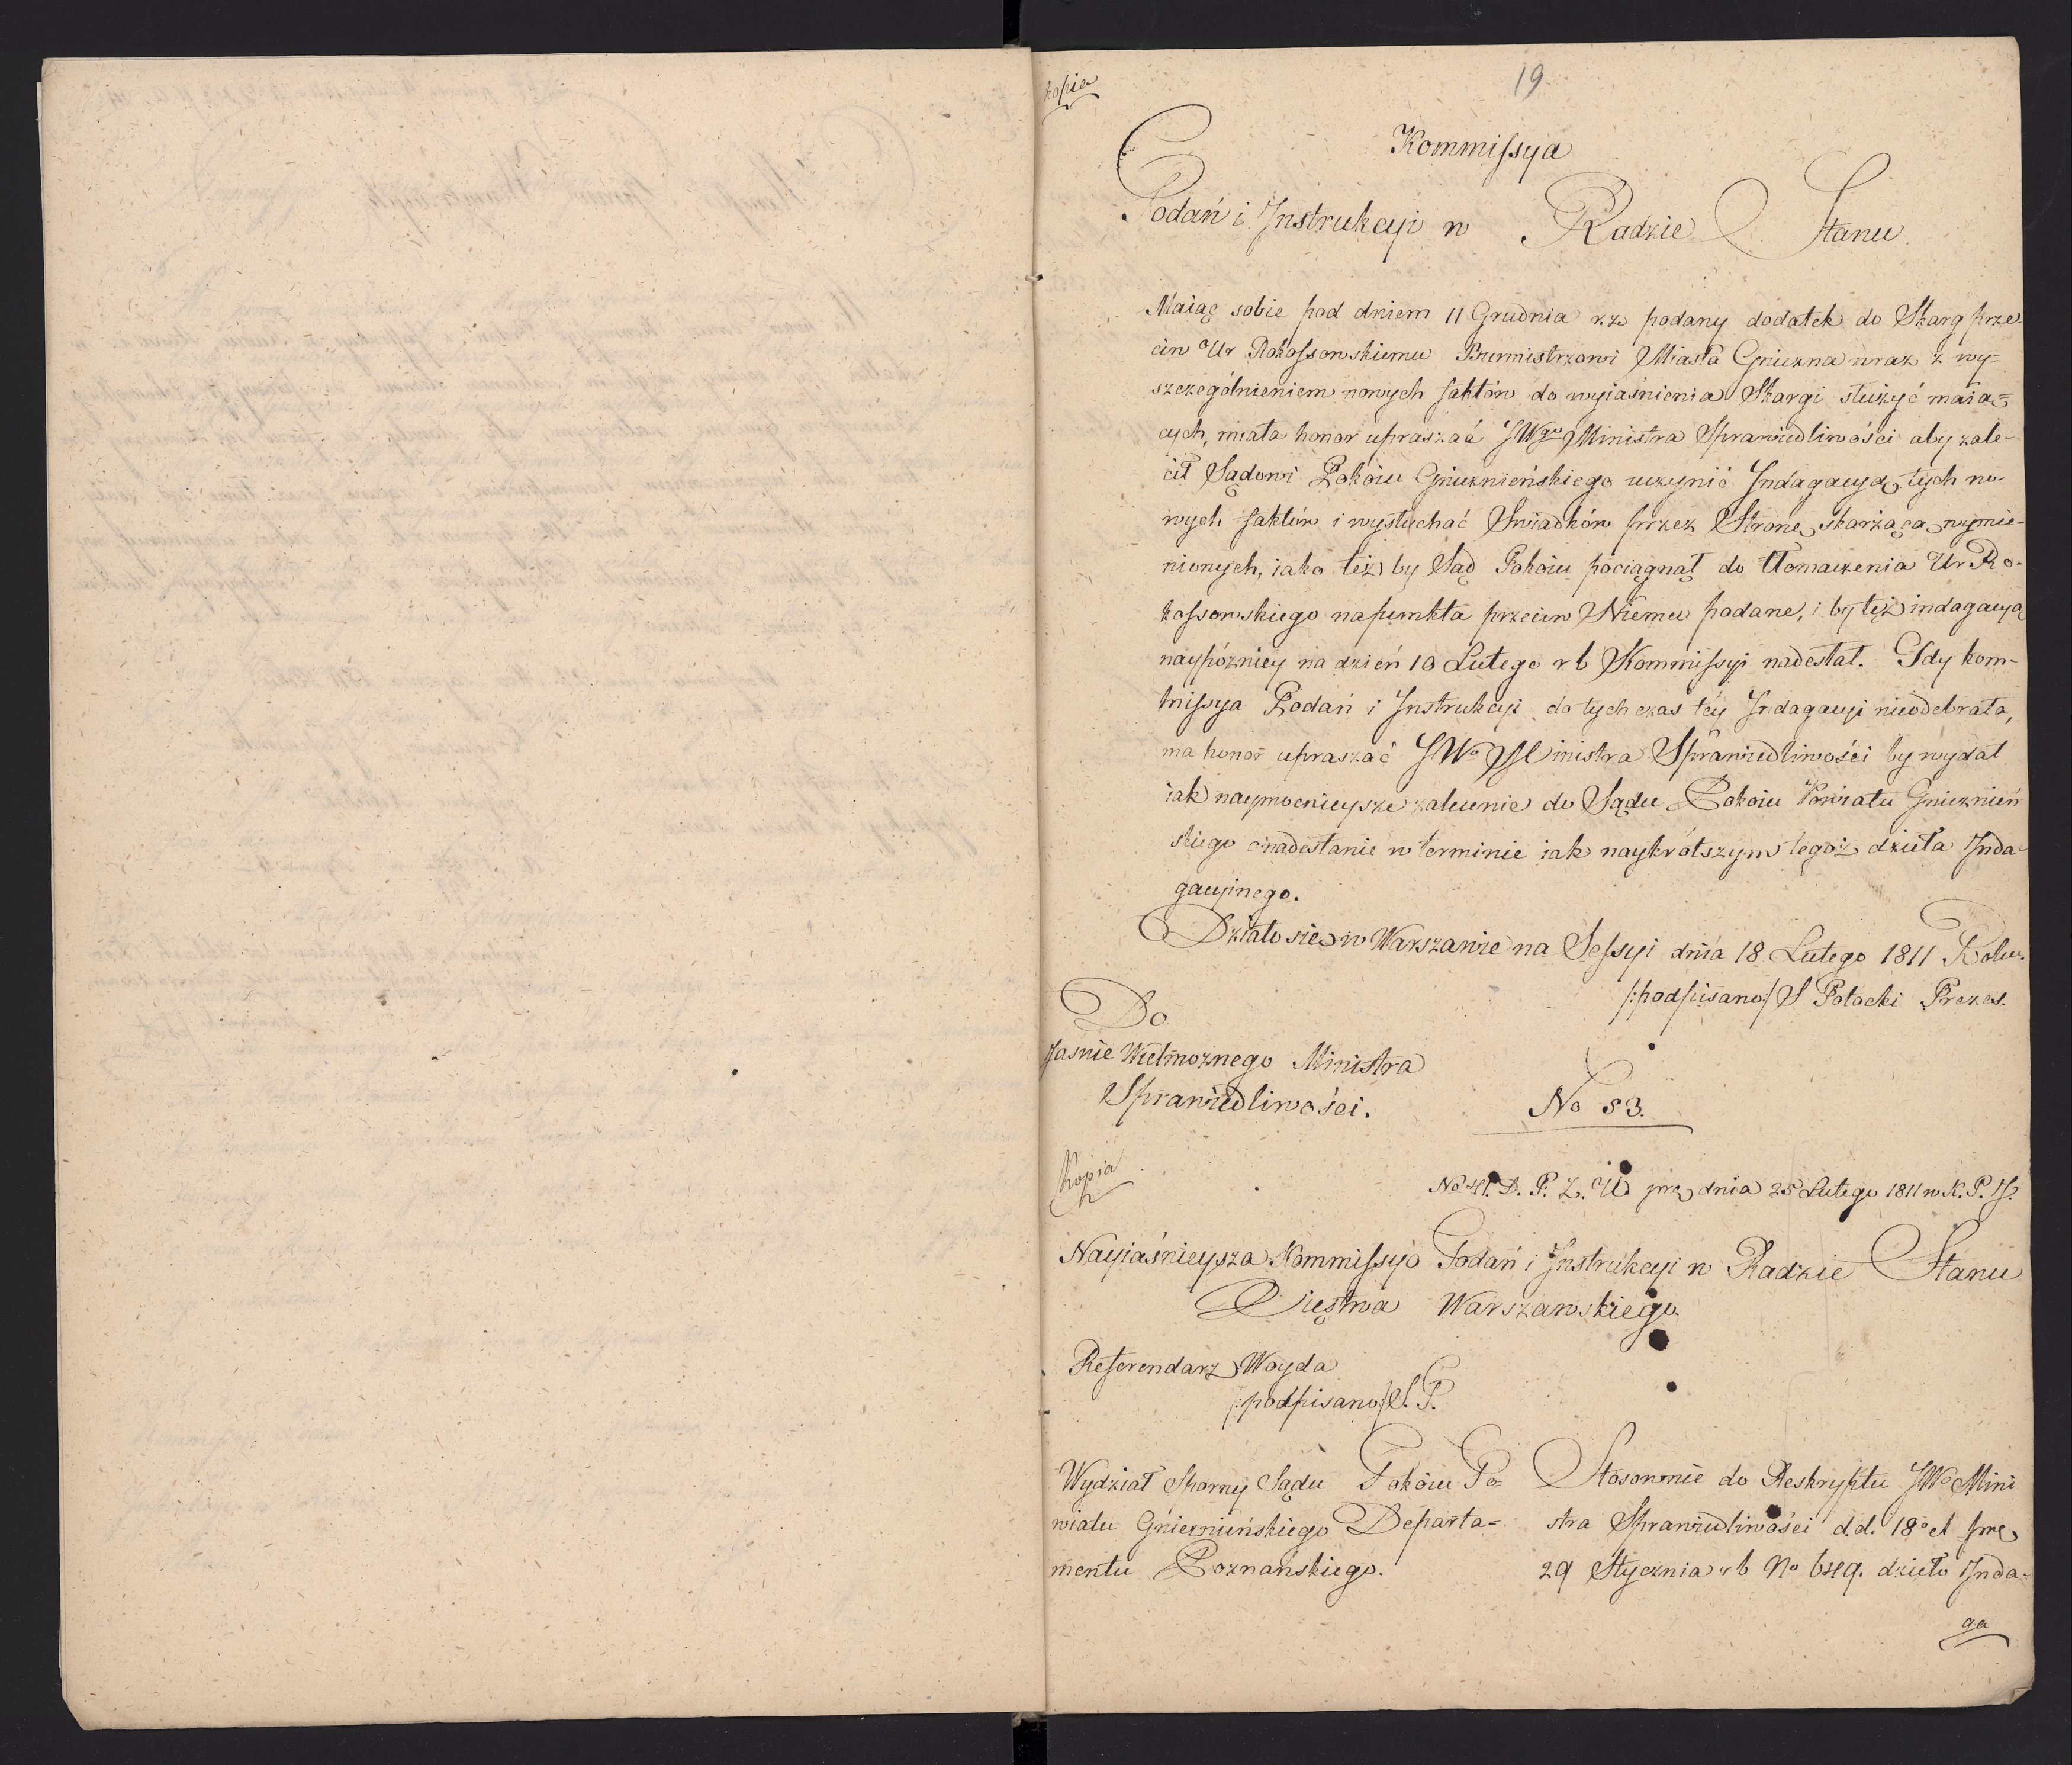 kopia
19
Kommissya
Podań i Instrukcyi w Radzie Stanu
Maiąc sobie pod dniem 11 Grudnia r. z. podany dodatek do Skarg prze-
ciw Ur Rokossowskiemu Burmistrzowi Miasta Gniezna wraz z wy-
szczególnieniem nowych faktów do wyiaśnienia Skargi służyć maią=
cych, miała honor upraszać JWgo Ministra Sprawiedliwości aby zale-
cił Sądowi Pokoiu Gnieznieńskiego uczynić Indagacyą tych no-
wych faktów i wysłuchać Swiadków przez Stronę skarżącą wymie-
nionych, iako też by Sąd Pokoiu pociągnął do tłomaczenia Ur Ro-
kossowskiego na punkta przeciw Niemu podane, i by też indagacyą
naypózniey na dzień 10 Lutego r b Kommissyi nadesłał. Gdy kom-
missya Podań i Instrukcyi do tych czas téy Indagacyi nieodebrała,
ma honor upraszać JWo Ministra Sprawiedliwości by wydał
iak naymocnieysze zalecenie do Sądu Pokoiu Powiatu Gnieznień
skiego o nadesłanie w terminie iak naykrótszym tegoż dzieła Inda-
gacyinego.
Działo się w Warszawie na Sessyi dnia 18 Lutego 1811 Roku.
/:podpisano:/ S Potocki Prezes.
Do
Jasnie Wielmoznego Ministra
Sprawiedliwości.
No 83.
Kopia
No 41. D. P. Z. W prę dnia 25 Lutego 1811 w K. P. J.
Nayiaśnieysza Kommissyo Podań i Instrukcyi w Radzie Stanu
Xięstwa Warszawskiego.
Referendarz Woyda
/:podpisano:/ S. P.
Wydział Sporny Sądu Pokoiu Po=
wiatu Gnieznieńskiego Departa=
mentu Poznańskiego.
Stosownie do Reskryptu JWo Mini
stra Sprawiedliwości d. d. 18o et prę
29 Stycznia r b No 6249. dzieło Inda-
ga